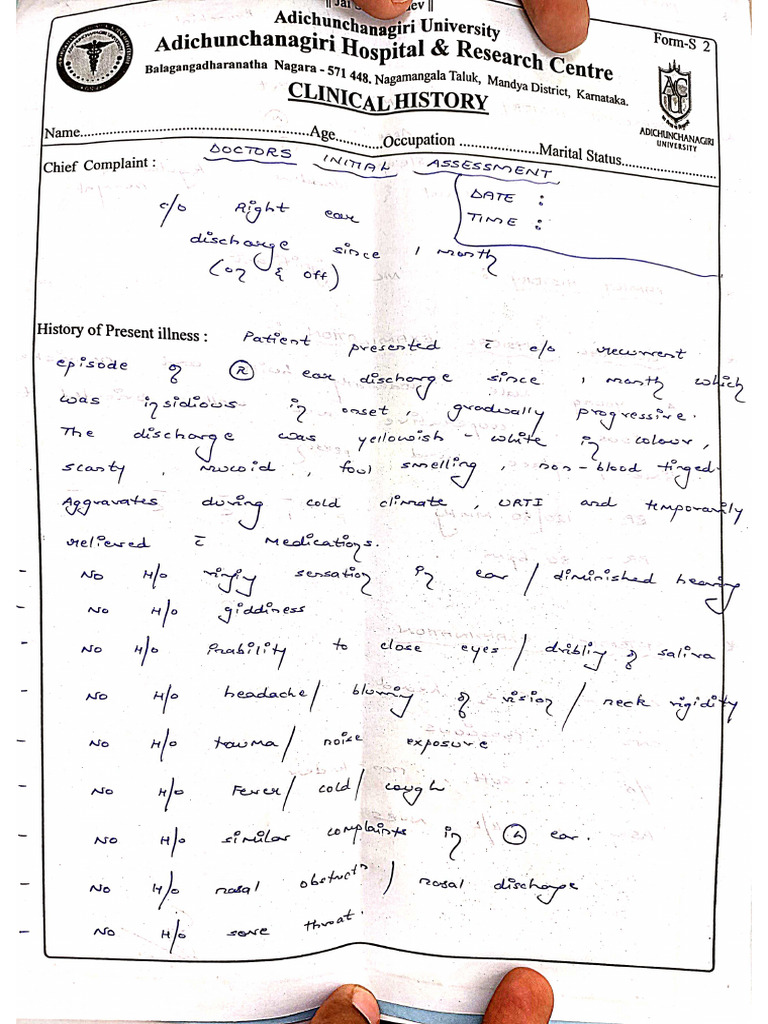 Adichunchanagiri University
Form-S 2
Adichunchanagiri Hospital & Research Centre
Balagangadharanatha Nagara - 571 448, Nagamangala Taluk, Mandya District, Karnataka.
CLINICAL HISTORY
ADICHUNCHANAGIRI
UNIVERSITY
Name............Age............Occupation............Marital Status............
Chief Complaint :
DOCTORS INITIAL ASSESSMENT
DATE :
TIME :
c/o Right ear
discharge since 1 month
(on & off)
History of Present illness : Patient presented c̄ c/o recurrent
episode of Ⓡ ear discharge since 1 month which
was insidious in onset, gradually progressive.
The discharge was yellowish - white in colour,
scanty, Mucoid, foul smelling, non-blood tinged.
Aggravates during cold climate, URTI and temporarily
relieved c̄ Medications.
- No H/o ringing sensation in ear / diminished hearing
- No H/o giddiness
- No H/o Inability to close eyes / dribling of saliva
- No H/o headache / blurring of vision / neck rigidity
- No H/o trauma / noise exposure
- No H/o Fever / cold / cough
- No H/o similar complaints in Ⓛ ear.
- No H/o nasal obstructn / nasal discharge
- No H/o sore throat.